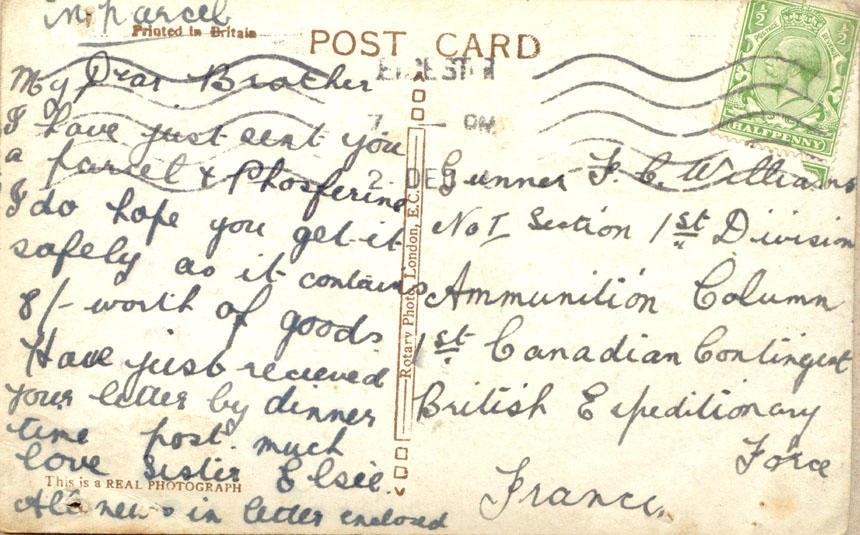 in parcel
Printed in Britain
POST CARD
My Dear Brother
I have just sent you
a parcel & Phosferine
I do hope you get it
safely as it contains
8/- worth of goods
Have just recieved
your letter by dinner
time post. much
love Sister Elsie.
This is a REAL PHOTOGRAPH
All news in letter enclosed
Rotary Photo, London, E.C.
7 PM
2 DEC
½ ½
POSTAGE
HALFPENNY
Gunner F. C. Williams
No 1 Section 1st Division
Ammunition Column
1st Canadian Contingent
British Expeditionary
Force
France.